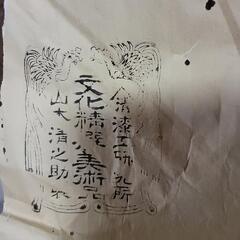 漆工研究所
文化精選美術品
山本清之助